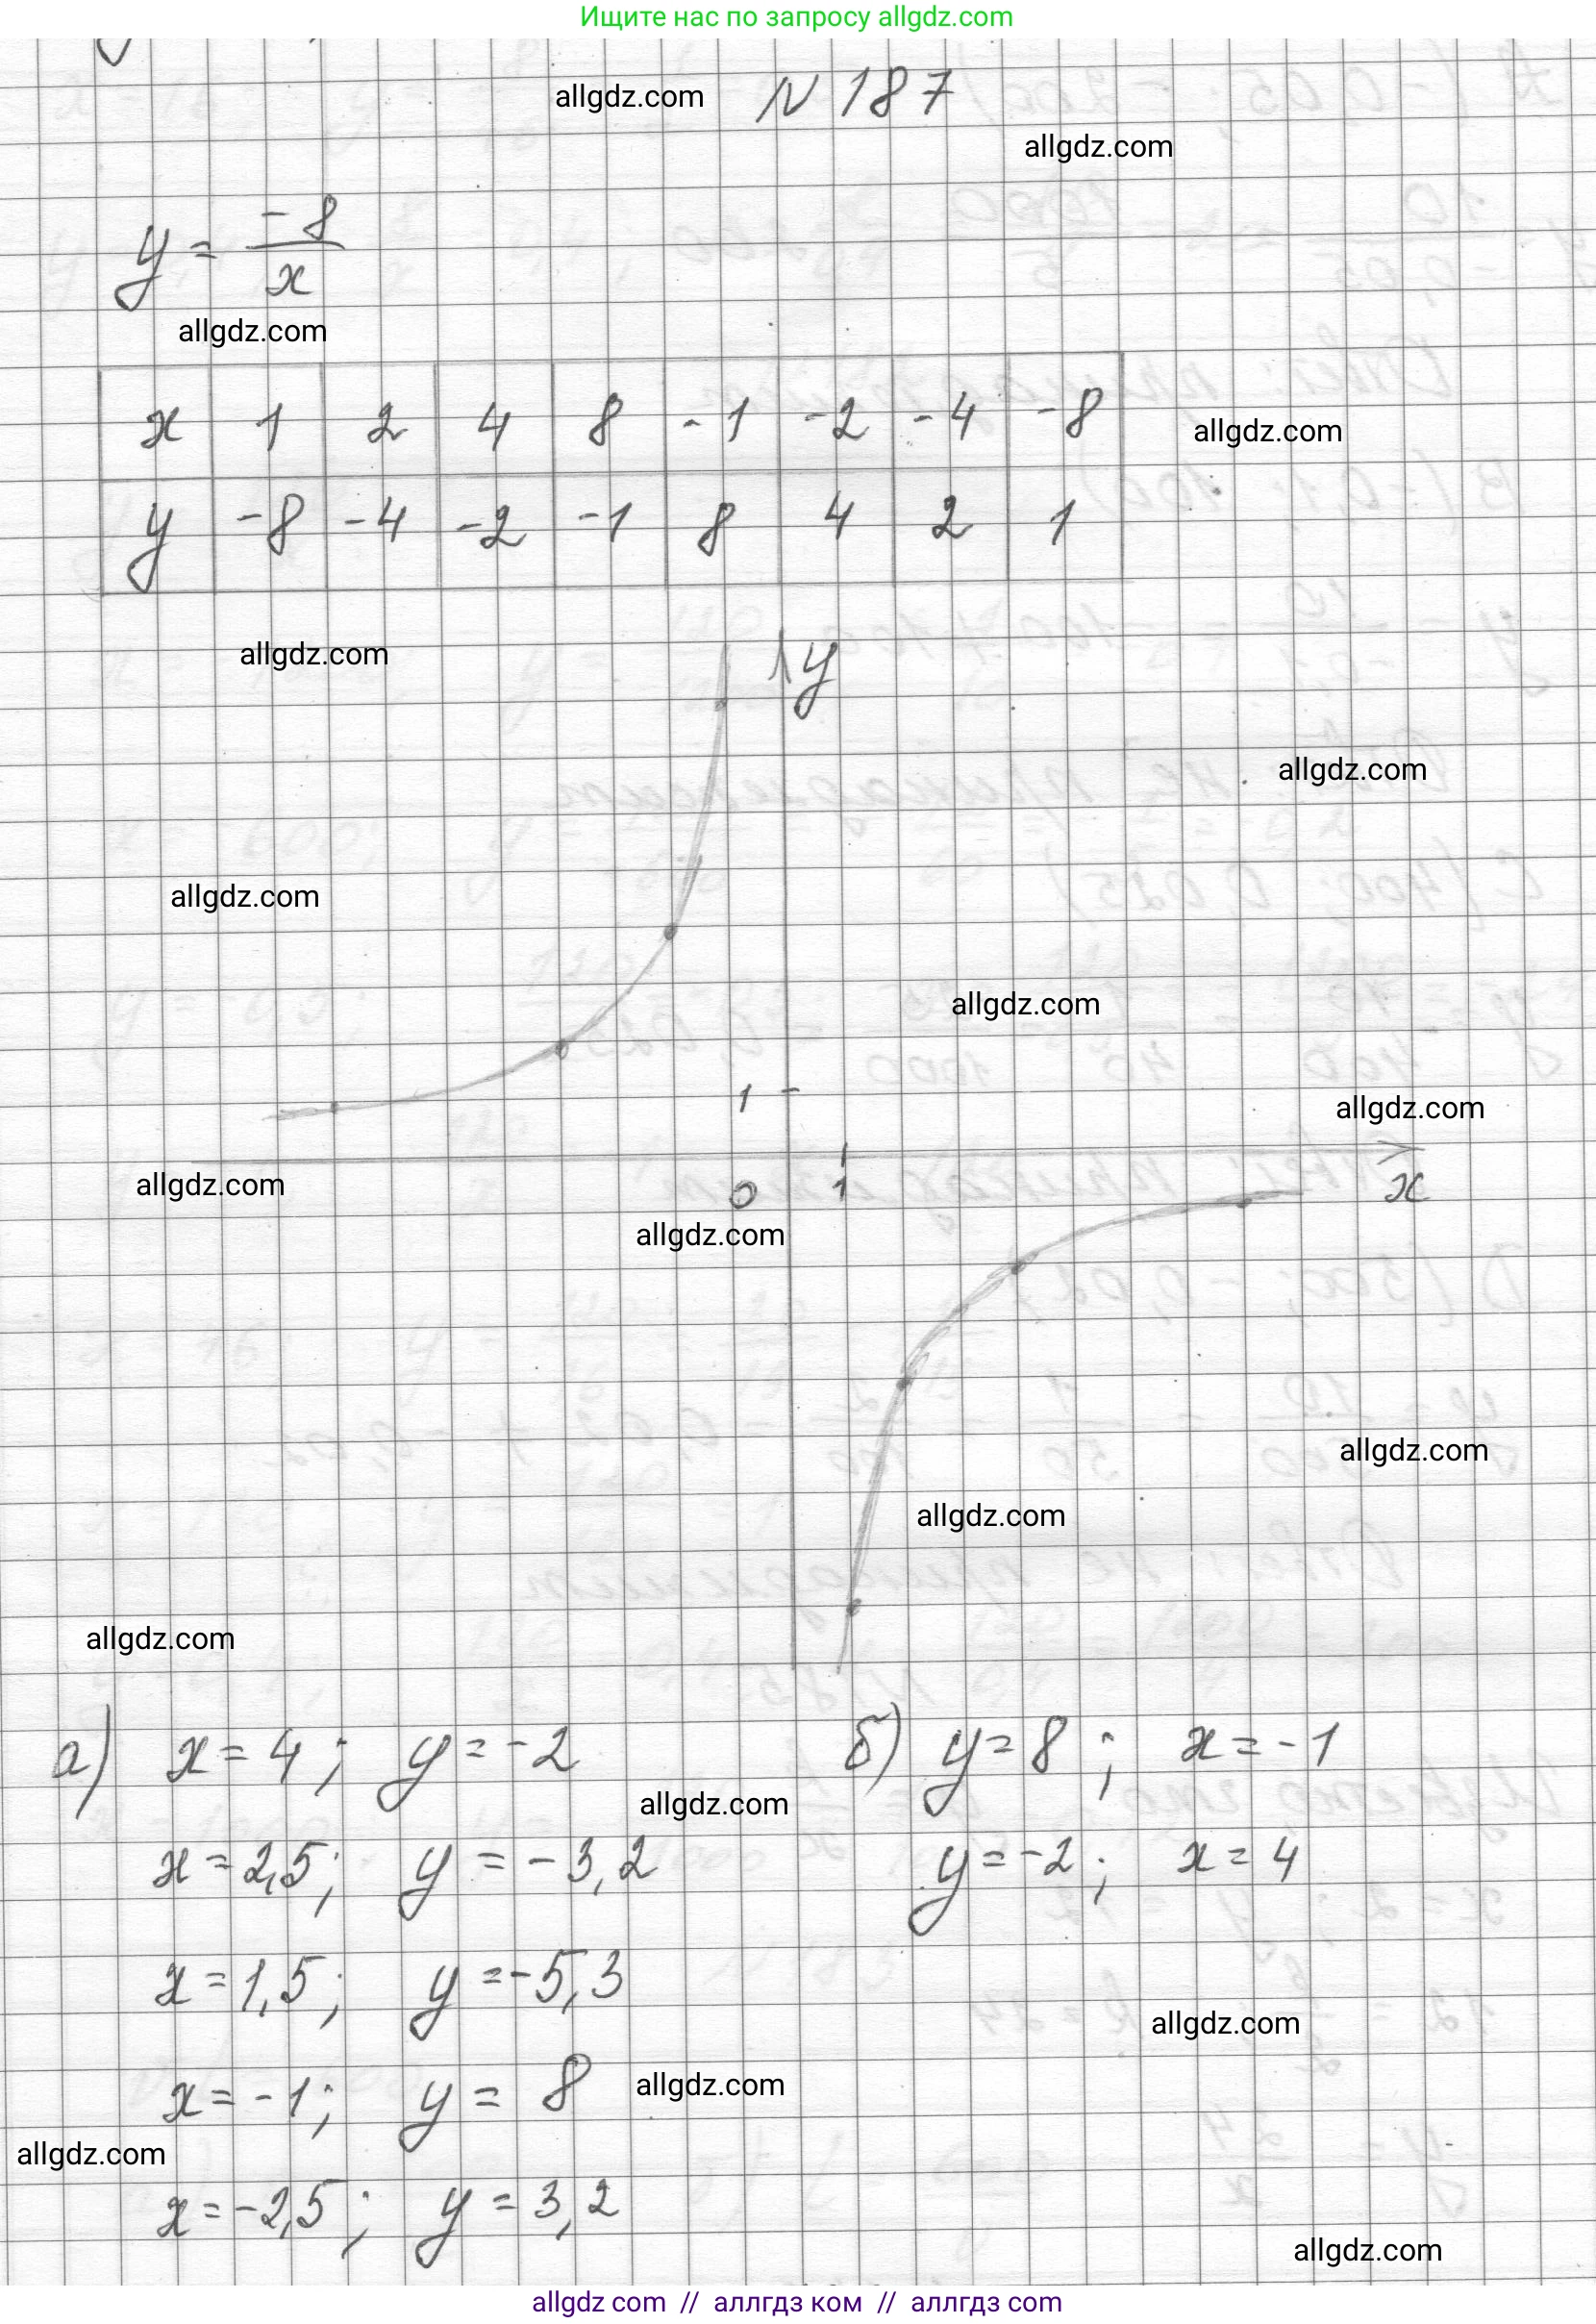 Ищите нас по запросу allgdz.com
allgdz.com N 187
allgdz.com
y = -8/x
allgdz.com
x 1 2 4 8 -1 -2 -4 -8
allgdz.com
y -8 -4 -2 -1 8 4 2 1
allgdz.com
y
allgdz.com
allgdz.com
allgdz.com
1
allgdz.com
allgdz.com
0 1 x
allgdz.com
allgdz.com
allgdz.com
allgdz.com
а) x = 4; y = -2 б) y = 8; x = -1
allgdz.com
x = 2,5; y = -3,2 y = -2; x = 4
x = 1,5; y = -5,3
allgdz.com
x = -1; y = 8
allgdz.com
allgdz.com
x = -2,5; y = 3,2
allgdz.com
allgdz com // аллгдз ком // аллгдз com